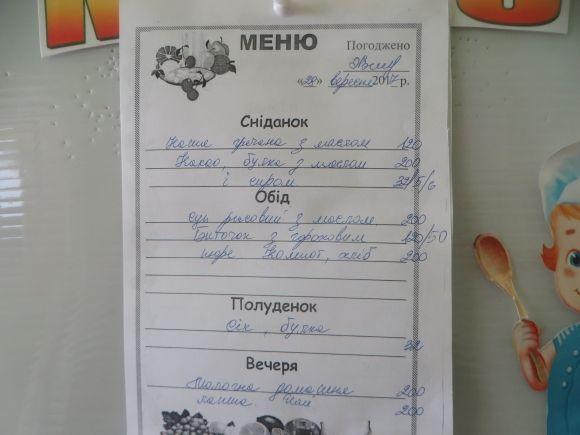 МЕНЮ
Погоджено
«28» вересня 2017 р.
Сніданок
Каша гречана з маслом 120
Какао, булка з маслом 200
і сиром 32/5/6
Обід
Суп рисовий з маслом 200
Биточок з гороховим 120/50
пюре. Компот, хліб 200
Полуденок
Сік, булка
32
Вечеря
Молочна домашня 200
лапша. Чай 200